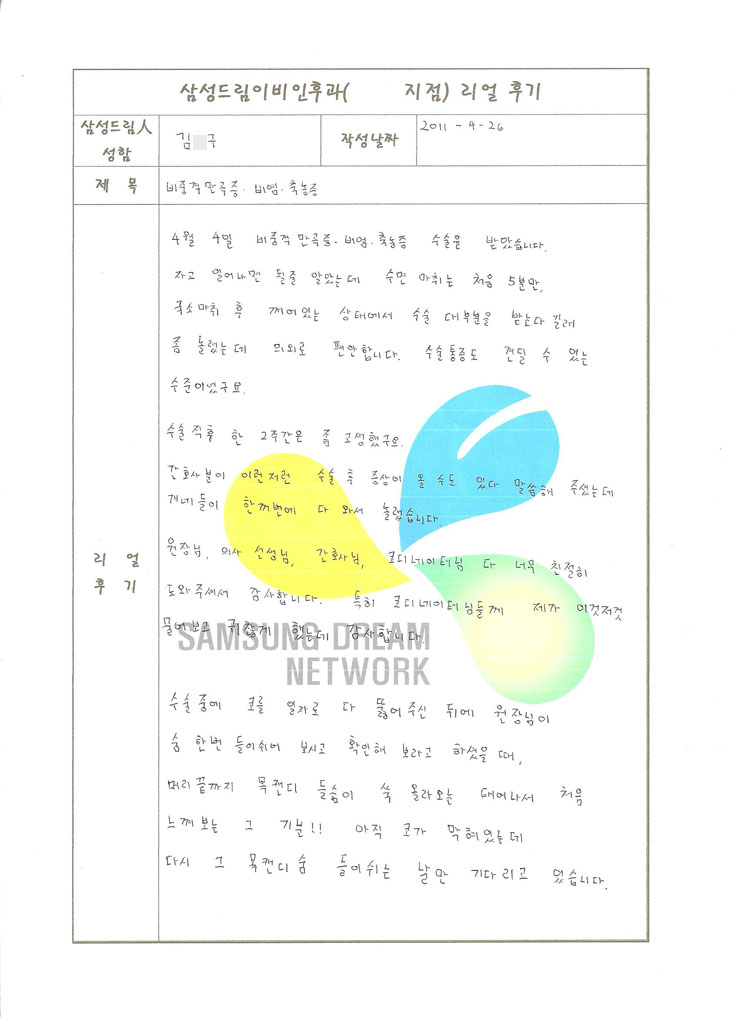 삼성드림이비인후과(        지점) 리얼 후기
삼성드림人
성함
김 구
작성날짜
2011 - 4 - 26
제 목
비중격만곡증. 비염. 축농증
리 얼
후 기
4월 4일 비중격 만곡증. 비염. 축농증 수술을 받았습니다.
자고 일어나면 될줄 알았는데 수면 마취는 처음 5분만,
국소마취 후 깨어있는 상태에서 수술 대부분을 받는다길래
좀 놀랬는데 의외로 편안합니다. 수술통증도 견딜 수 있는
수준이었구요.
수술 직후 한 2주간은 좀 고생했구요.
간호사분이 이런저런 수술 후 증상이 올 수도 있다 말씀해 주셨는데
걔네들이 한꺼번에 다 와서 놀랬습니다.
원장님, 의사 선생님, 간호사님, 코디네이터님 다 너무 친절히
도와주셔서 감사합니다. 특히 코디네이터님들께 제가 이것저것
물어보고 귀찮게 했는데 감사합니다.
SAMSUNG DREAM
NETWORK
수술 중에 코를 일자로 다 뚫어주신 뒤에 원장님이
숨 한번 들이쉬어 보시고 확인해 보라고 하셨을 때,
머리끝까지 목캔디 들숨이 쑥 올라오는 태어나서 처음
느껴보는 그 기분!! 아직 코가 막혀있는데
다시 그 목캔디 숨 들이쉬는 날만 기다리고 있습니다.